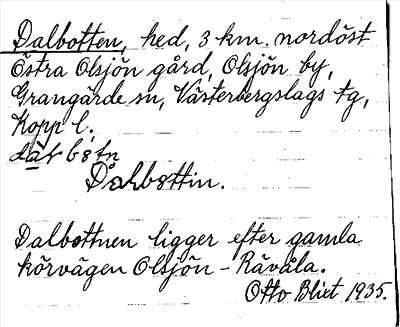 Dalbotten, hed, 3 km. nordöst
Östra Olsjön gård, Olsjön by,
Grangärde sn, Västerbergslags tg,
Kopp l.
Dalbottin.
Dalbottnen ligger efter gamla
körvägen Olsjön - Rävåla.
Otto Blixt 1935.